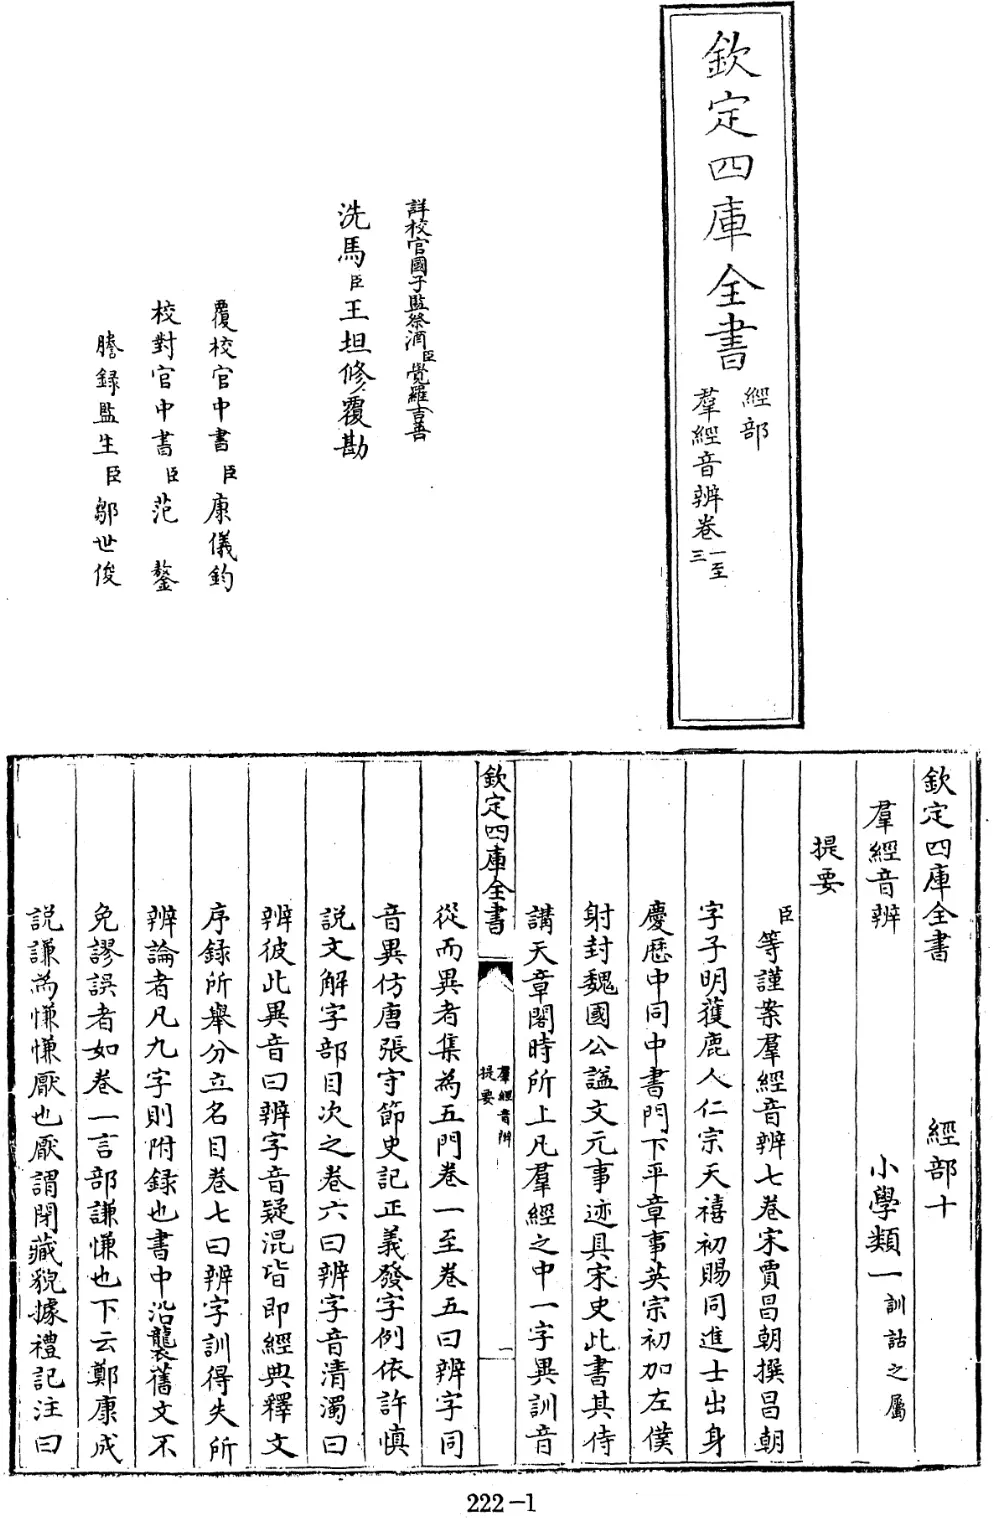 欽定四庫全書
經部
羣經音辨卷一至三
詳校官國子監祭酒臣覺羅吉善
洗馬臣王坦修覆勘
覆校官中書臣康儀鈞
校對官中書臣范鏊
謄録監生臣鄒世俊
欽定四庫全書 經部十
羣經音辨 小學類一訓詁之屬
提要
臣等謹案羣經音辨七卷宋賈昌朝撰昌朝
字子明獲鹿人仁宗天禧初賜同進士出身
慶歷中同中書門下平章事英宗初加左僕
射封魏國公諡文元事迹具宋史此書其侍
講天章閣時所上凡羣經之中一字異訓音
欽定四庫全書 羣經音辨 提要 一
從而異者集為五門卷一至卷五曰辨字同
音異仿唐張守節史記正義發字例依許慎
説文解字部目次之卷六曰辨字音清濁曰
辨彼此異音曰辨字音疑混皆即經典釋文
序録所舉分立名目卷七曰辨字訓得失所
辨論者凡九字則附録也書中沿襲舊文不
免謬誤者如卷一言部謙慊也下云鄭康成
説謙為慊慊厭也厭謂閉藏貌據禮記注曰
222-1